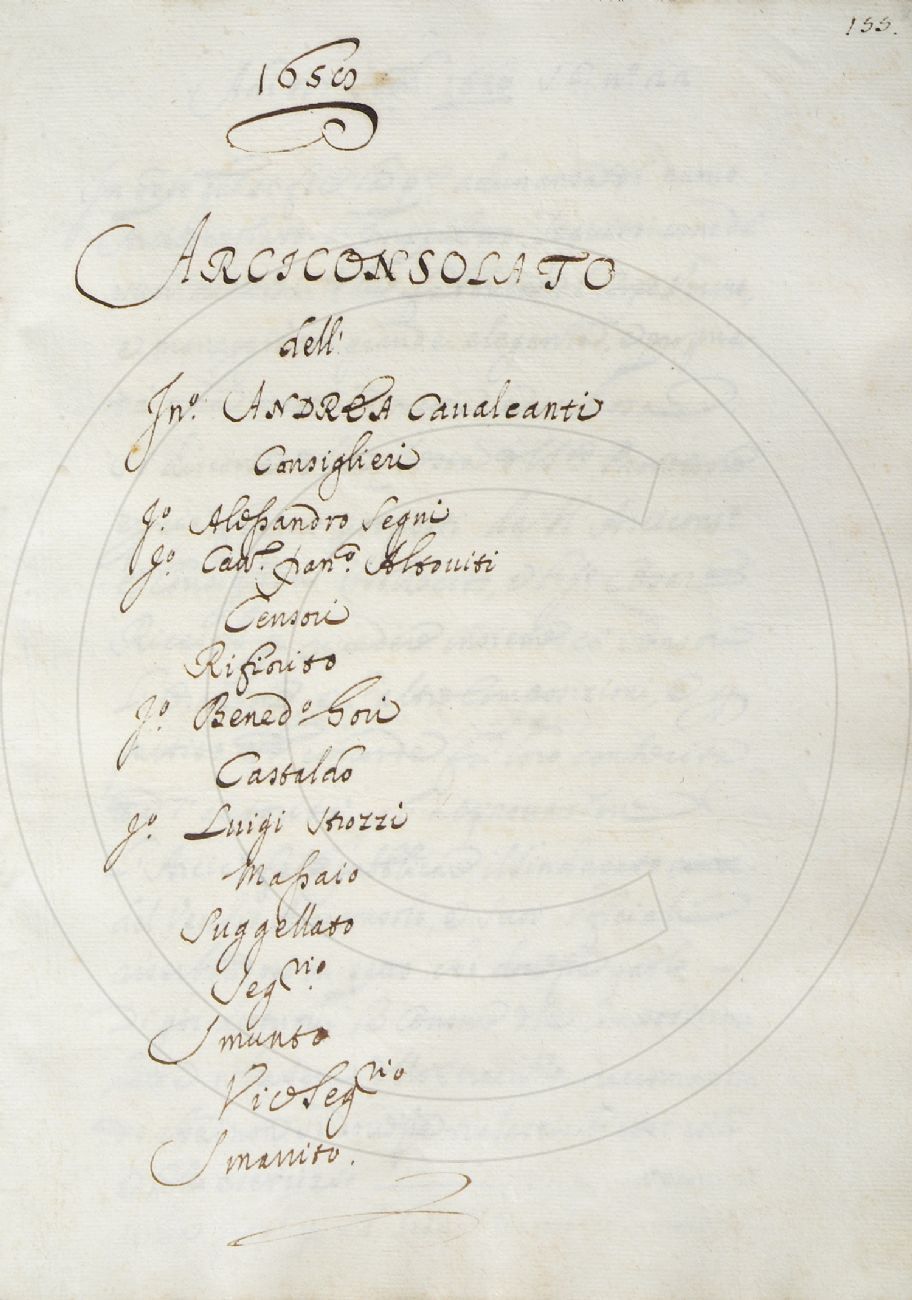 155.
ARCICONSOLATO
dell'
Inº. ANDREA Caualcanti
Consiglieri
Jº. Alessandro Segni
Jº. Cau.re Altouiti
Censori
Rifiorito
Jº. Bened.º Gori
Castaldo
Jº. Luigi Strozzi
Massaio
Suggellato
Segrio.
Smunto
ViceSegrio
Smarrito.